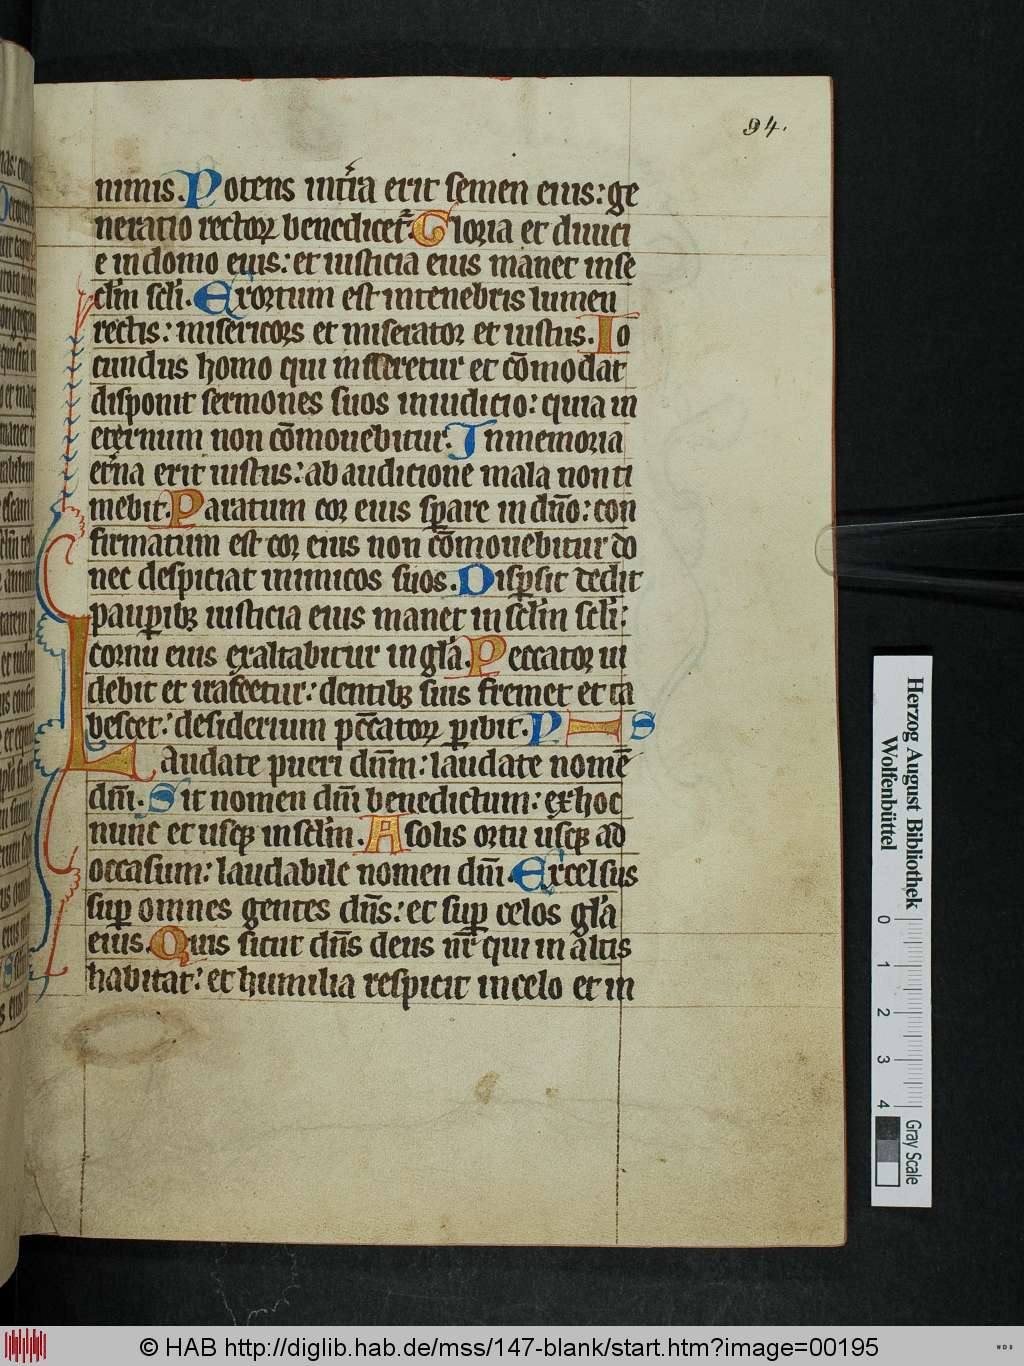 94.
nimis. Potens in t̄ra erit semen eius: ge
neratio rectoꝝ benedicet᷑. Gloria et diuici
e in domo eius: et iusticia eius manet in se
cl̄m scl̄i. Exortum est in tenebris lumen
rectis: misericors et miserator et iustus. Io
cundus homo qui miseretur et cōmodat
disponit sermones suos in iudicio: quia in
eternum non cōmouebitur. In memoria
et̄na erit iustus: ab audicione mala non ti
mebit. Paratum cor eius sꝑare in dn̄o: con
firmatum est cor eius non cōmouebitur do
nec despiciat inimicos suos. Disꝑsit dedit
pauꝑibꝫ iusticia eius manet in scl̄m scl̄i:
cornu eius exaltabitur in gl̄a. Peccator ui
debit et irascetur: dentibꝫ suis fremet et ta
bescet: desiderium pc̄catoꝝ ꝑibit. P S
Laudate pueri dn̄m: laudate nomē
dn̄i. Sit nomen dn̄i benedictum: ex hoc
nunc et usqꝫ in scl̄m. A solis ortu usqꝫ ad
occasum: laudabile nomen dn̄i. Excelsus
suꝑ omnes gentes dn̄s: et suꝑ celos gl̄a
eius. Quis sicut dn̄s deus nr̄ qui in altis
habitat: et humilia respicit in celo et in
Herzog August Bibliothek
Wolfenbüttel
0 1 2 3 4
Gray Scale
© HAB http://diglib.hab.de/mss/147-blank/start.htm?image=00195